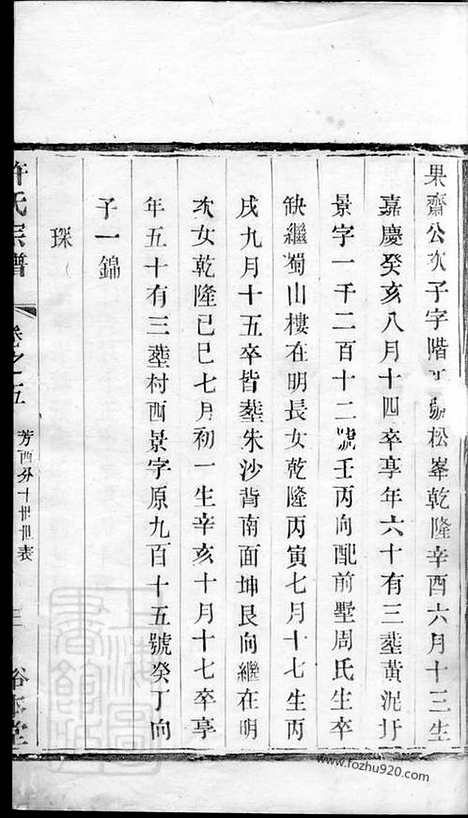 果齋公次子字階平號松峯乾隆辛酉六月十三生
嘉慶癸亥八月十四卒享年六十有三塟黃泥圩
景字一千二百十二號壬丙向配前墅周氏生卒
缺繼蜀山樓在明長女乾隆丙寅七月十七生丙
戌九月十五卒皆塟朱沙背南面坤艮向繼在明
次女乾隆己巳七月初一生辛亥十月十七卒享
年五十有三塟村西景字原九百十五號癸丁向
子一錦
琛
許氏宗譜
卷之五
芳酉分十世世表
三
裕本堂
上海圖書館藏
www.fozhu920.com